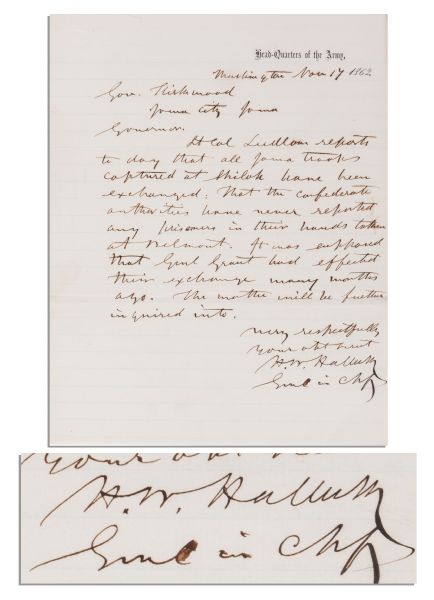 Head-Quarters of the Army,
Washington Nov 17 1862
Gov. Kirkwood
Iowa City Iowa
Governor.
Lt Col Ludlow reports
to day that all Iowa troops
captured at Shiloh have been
exchanged; that the confederate
authorities have never reported
any prisoners in their hands taken
at Belmont. It was supposed
that Genl Grant had effected
their exchange many months
ago. The matter will be further
inquired into.
very respectfully
your obt servt
H.W. Halleck
Genl in Chf
your obt
H.W. Halleck
Genl in Chf